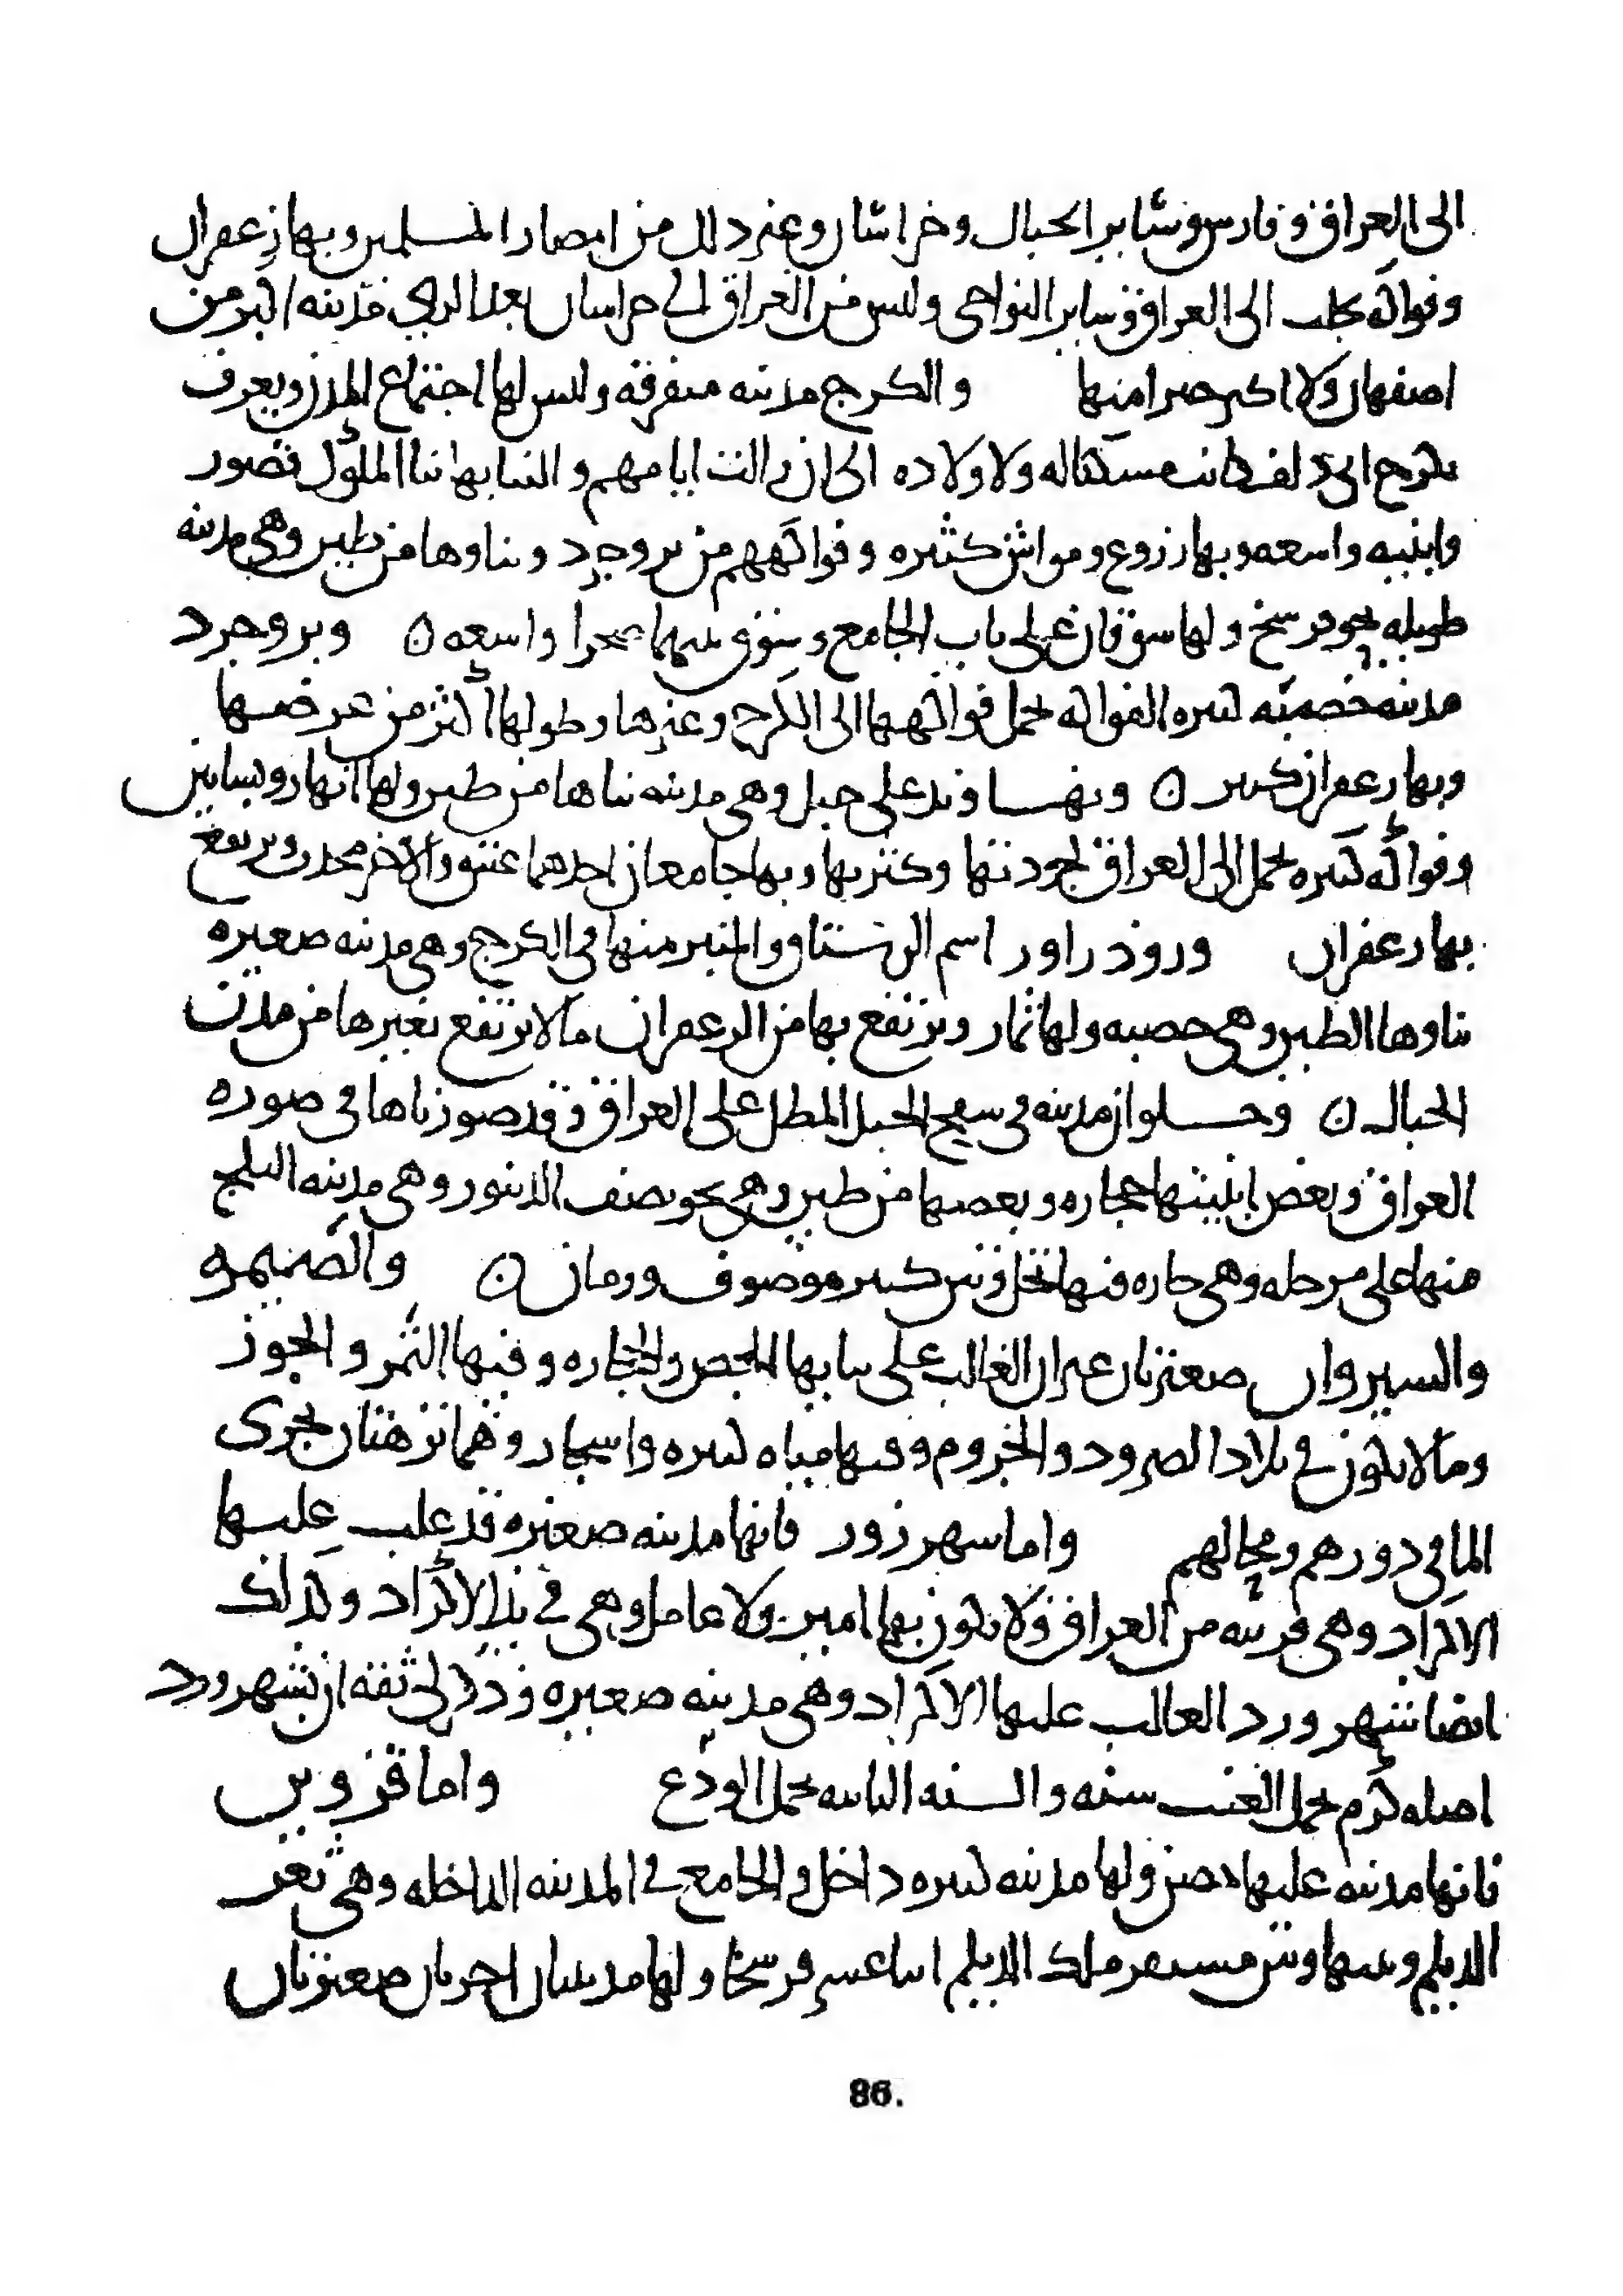 الى العراق وفارس وسائر الجبال وخراسان وغير ذلك من امصار المسلمين وبها زعفران
وفواكه تجلب الى العراق وسائر النواحي وليس من العراق الى خراسان بعد الري مدينه اكبر من
اصفهان ولا اكثر خيرا منها والكرج مدينه متفرقه وليس لها اجتماع المدن ويعرف
بكرج ابي دلف كانت مسكنا له ولاولاده الى ان زالت ايامهم والبنا بها بنا الملوك قصور
وابنيه واسعه وبها زروع ومواش كثيره وفواكههم من بروجرد وبناوها من طين وهي مدينه
طويله نحو فرسخ ولها سوقان على باب الجامع وسوق بينهما صحرا واسعه ن وبروجرد
مدينه خصبه كثيره الفواكه تحمل فواكهها الى الكرج وغيرها وطولها اكثر من عرضها
وبها زعفران كثير ن ونهاوند على جبل وهي مدينه بناها من طين ولها انهار وبساتين
وفواكه كثيره تحمل الى العراق لجودتها وكثرتها وبها جامعان احدهما عتيق والاخر محدث ويرتفع
بها زعفران وروذراور اسم الرستاق والمنبر منها في الكرج وهي مدينه صغيره
بناوها الطين وهي خصبه ولها ثمار ويرتفع بها من الزعفران ما لا يرتفع بغيرها من مدن
الجبال ن وحلوان مدينه في سفح الجبل المطل على العراق وقد صورناها في صوره
العراق وبعض ابنيتها حجاره وبعضها من طين وهي نحو نصف الدينور وهي مدينه الثلج
منها على مرحله وهي حاره فيها نخل وتين كثير موصوف ورمان ن والصيمره
والسيروان صغيرتان غير ان الغالب على بنايها الجص والحجاره وفيها التمر والجوز
وما لا يكون في بلاد الصرود والجروم وفيها مياه كثيره واشجار وهما نزهتان يجرى
الما في دورهم ومحالهم واما شهرزور فانها مدينه صغيره قد غلب عليها
الاكراد وهي قريبه من العراق ولا يكون بها امير ولا عامل وهي في يد الاكراد وكذلك
ايضا شهرورد الغالب عليها الاكراد وهي مدينه صغيره وذكر لي ثقه ان شهرورد
اصله كرم يحمل العنب سنه والسنه الثانيه يحمل الودع واما قزوين
فانها مدينه عليها حصن ولها مدينه كثيره داخل والجامع في المدينه الداخله وهي ثغر
الديلم وبينها وبين مستقر ملك الديلم اثنا عشر فرسخا ولها مدينتان اخريان صغيرتان
86.